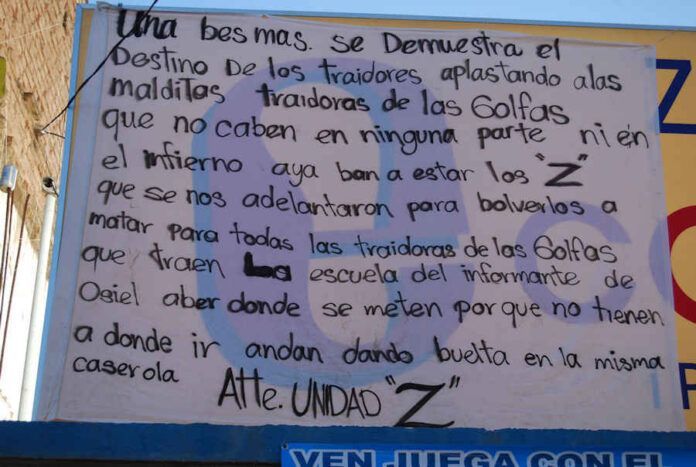 una bes mas. se Demuestra el
Destino De los traidores aplastando a las
malditas traidoras de las Golfas
que no caben en ninguna parte ni en
el infierno aya ban a estar los "Z"
que se nos adelantaron para bolverlos a
matar para todas las traidoras de las Golfas
que traen La escuela del informante de
Osiel aber donde se meten por que no tienen
a donde ir andan dando buelta en la misma
caserola
Atte. UNIDAD "Z"
VEN JUEGA CON EL